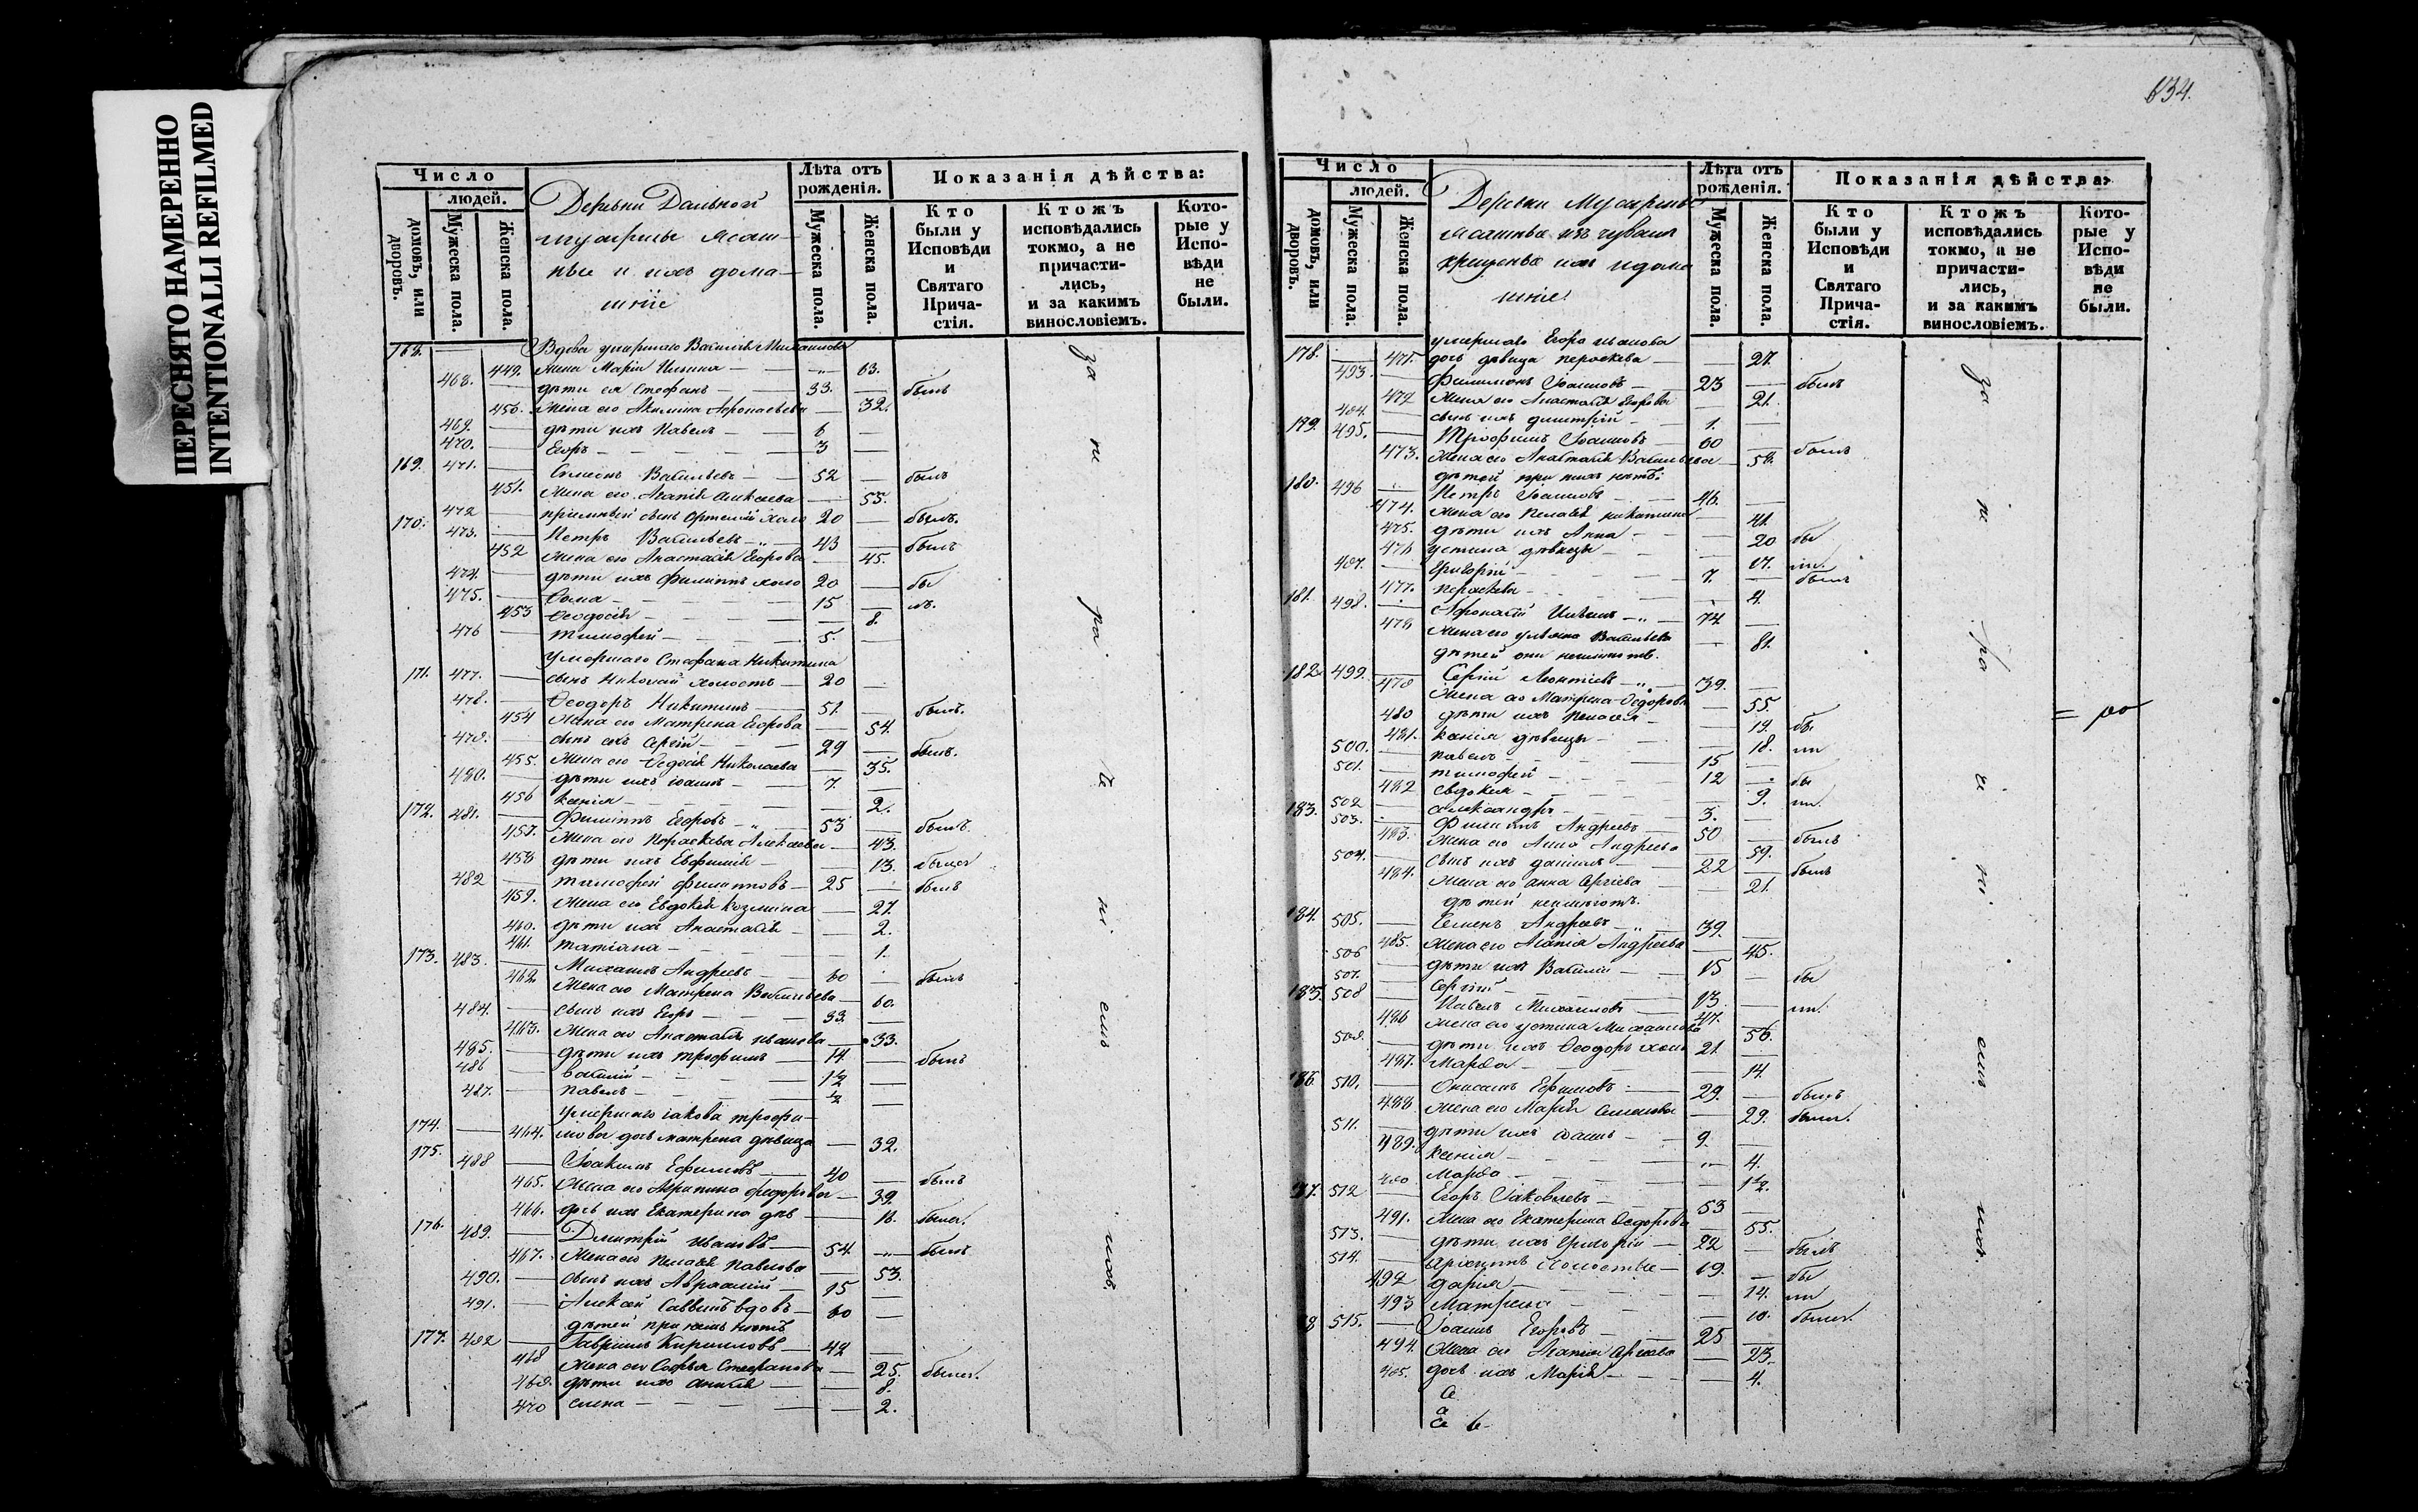 ПЕРЕСНЯТО НАМЕРЕННО
INTENTIONALLI REFILMED
634.
Число
людей.
домовъ, или дворовъ.
Мужеска пола.
Женска пола.
Деревни Дальной
ясаш-
ные и ихъ дома-
шніе
Лѣта отъ рожденія.
Мужеска пола.
Женска пола.
Показанія дѣйства:
Кто были у Исповѣди и Святаго Прича-стія.
Ктожъ исповѣдались токмо, а не причасти-лись, и за какимъ винословіемъ.
Кото-рые у Испо-вѣди не были.
168. Вдова умершаго Василья Михайлова
449. жена Марія Ильина — 63.
468. дѣти ея Стефанъ — 33. былъ
450. жена его Акилина — 32.
469. дѣти ихъ Павелъ — 6
470. Егоръ — 3
169. 471. Симеонъ Васильевъ — 52 былъ
451. жена его Агапія Алексеева — 53.
472 сынъ 20 былъ.
170. 473. Петръ Васильевъ — 43 былъ
452 жена его Анастасія Егорова — 45.
474. дѣти ихъ Филиппъ холо 20 бы
475. Фома — 15 лъ.
453 Феодосія — 8.
476 Тимофей — 5.
умершаго Стефана Никитина
171. 477. сынъ Николай холостъ — 20
478. Феодоръ Никитинъ — 51. былъ.
454 жена его Матрена Егорова — 54.
479. сынъ ихъ Сергій — 29 былъ.
455. жена его Федосія Николаева — 35.
480. дѣти ихъ Іоаннъ — 7.
456 Ксенія — 2.
172. 481. Филиппъ Егоровъ — 53 былъ.
457. жена его Параскева Алексеева — 43.
458 дѣти ихъ Евфимія — 13. была
482 Тимофей Филипповъ — 25 былъ
459. жена его Евдокія Козмина — 27.
460. дѣти ихъ Анастасія — 2.
461. Татіана — 1.
173. 483. Михаилъ Андреевъ — 60 былъ
462. жена его Матрена Васильева — 60.
484. сынъ ихъ Егоръ — 33.
463. жена его Анастасія Иванова — 33.
485. дѣти ихъ Трофимъ — 14. былъ
486 Василій — 1½
487. Павелъ — ½
умершаго Іакова Трофи-
174. 464. мова дочь Матрена дѣвица — 32.
175. 488 Іоакимъ Ефимовъ — 40 былъ
465. жена его Агрипина Федорова — 39.
466. дочь ихъ Екатерина дѣв — 16. была.
176. 489. Дмитрій Ивановъ — 54. былъ
467. жена его Пелагея Павлова — 53.
490. сынъ ихъ Авраамій — 15
491. Алексей Саввинъ вдовъ — 60
дѣтей при немъ нѣтъ
177. 492 Гавріилъ Кирилловъ — 42
468 жена его Софья Стефанова — 25. была.
469. дѣти ихъ — 8.
470 Елена — 2.
за не ра че ні емъ
Число
людей.
домовъ, или дворовъ.
Мужеска пола.
Женска пола.
Деревни
ясашные изъ чувашъ
крещеные ихъ и дома
шніе.
Лѣта отъ рожденія.
Мужеска пола.
Женска пола.
Показанія дѣйства:
Кто были у Исповѣди и Святаго Прича-стія.
Ктожъ исповѣдались токмо, а не причасти-лись, и за какимъ винословіемъ.
Кото-рые у Испо-вѣди не были.
умершаго Егора Иванова
178. 471. дочь дѣвица Пераскева — 27.
493. Филимонъ Іоанновъ — 23 былъ
472 жена его Анастасія Егорова — 21.
494. сынъ ихъ Димитрій — 1.
179. 495. Трофимъ Іоанновъ — 60 былъ
473. жена его Анастасія Васильева — 58.
дѣтей при нихъ нѣтъ:
180. 496 Петръ Іоанновъ — 46.
474. жена его Пелагея Никитина — 41.
475. дѣти ихъ Анна — 20 бы
476 Устина дѣвицы — 17. ли.
497. Григорій — 7. былъ
477. Пераскева — 4.
181. 498. Афонасій — 74
478 жена его Ульяна Васильева — 81.
дѣтей они неимеютъ.
182. 499. Сергій Леонтіевъ — 39.
479 жена его Матрена Федорова — 55.
480 дѣти ихъ Пелагея — 19. бы
481. Ксенія дѣвицы — 18. ли
500. Павелъ — 15
501. Тимофей — 12 бы
482 Евдокія — 9. ли.
502 Александръ — 3.
183. 503. Филиппъ Андреевъ — 50 былъ
483. жена его Анна Андреева — 59.
504. сынъ ихъ Даніилъ — 22 былъ
484. жена его Анна Сергіева — 21.
дѣтей неимеютъ.
184. 505. Семенъ Андреевъ — 39.
485. жена его Агапія Андреева — 45.
506 дѣти ихъ Василій — 15 бы
507. Сергій — 13 ли.
185. 508 Павелъ Михайловъ — 47.
486 жена его Устина Михайлова — 56.
509. дѣти ихъ Феодоръ холо 21
487. Марфа — 14.
186. 510. Ефимовъ — 29. былъ
488 жена его Марія Симонова — 29. была.
511. дѣти ихъ Іоаннъ — 9.
489. Ксенія — 4.
490 Марфа — 1½.
87. 512 Егоръ Іаковлевъ — 53
491. жена его Екатерина Федорова — 55.
513. дѣти ихъ Григорій — 22 былъ
514. Архиппъ холостые — 19. бы
492 Дарія — 14. ли
493 Матрена — 10. была.
8 515. Іоаннъ Егоровъ — 25
494. жена его Агапія Сергеева — 23.
495. дочь ихъ Марія — 4.
за не ра че ні емъ